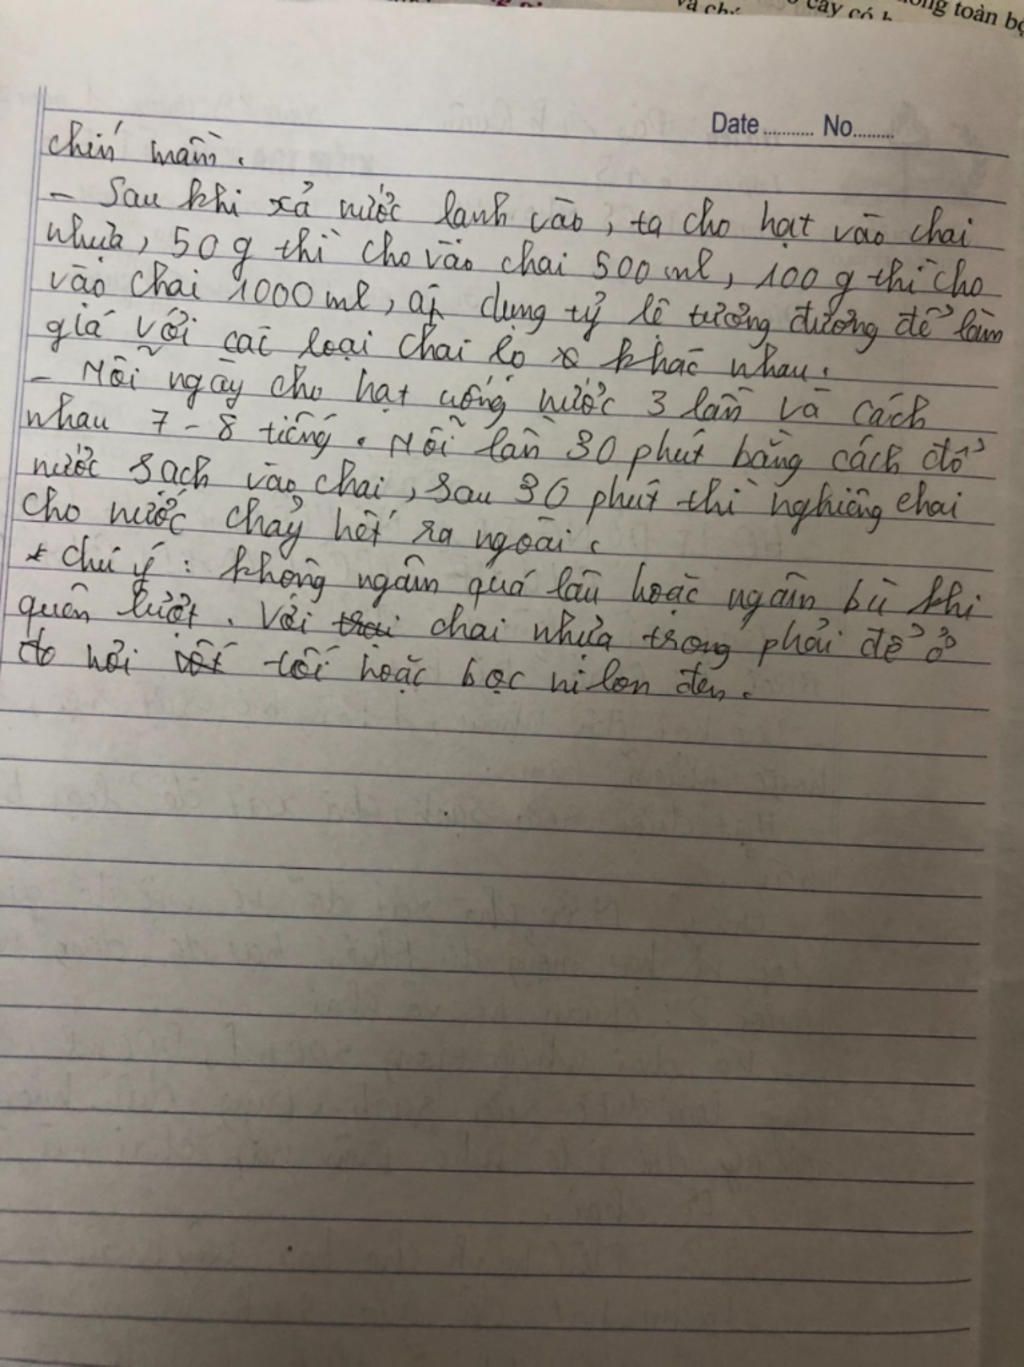 và ch
cây có h
ông toàn bộ
Date.......... No.........
chín mầm.
- Sau khi xả nước lạnh vào, ta cho hạt vào chai
nhựa, 50 g thì cho vào chai 500 ml, 100 g thì cho
vào chai 1000 ml, áp dụng tỷ lệ tương đương để làm
giá với các loại chai lọ khác nhau.
- Mỗi ngày cho hạt uống nước 3 lần và cách
nhau 7 - 8 tiếng. Mỗi lần 30 phút bằng cách đổ
nước sạch vào chai, sau 30 phút thì nghiêng chai
cho nước chảy hết ra ngoài.
* Chú ý: không ngâm quá lâu hoặc ngâm bù khi
quên lượt. Với trai chai nhựa trong phải để ở
nơi tối hoặc bọc ni lon đen.